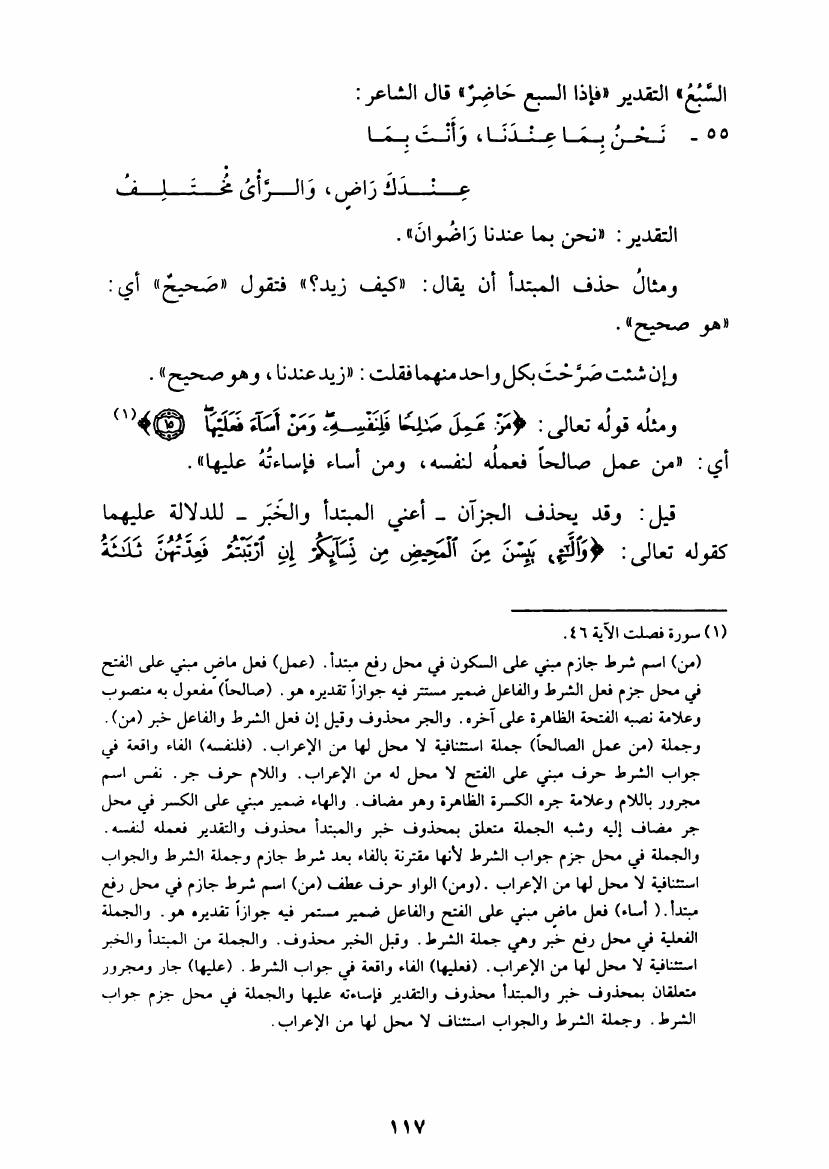 السَّبُعُ» التقدير «فإذا السبع حَاضِرٌ» قال الشاعر:
٥٥ - نَحْنُ بِمَا عِنْدَنَا، وَأَنْتَ بِمَا
عِنْدَكَ رَاضٍ، وَالرَّأْيُ مُخْتَلِفُ
التقدير: «نحن بما عندنا رَاضُوانَ».
ومثالُ حذف المبتدأ أن يقال: «كيف زيد؟» فتقول «صَحيحٌ» أي:
«هو صحيح».
وإن شئت صَرَّحْتَ بكل واحد منهما فقلت: «زيد عندنا، وهو صحيح».
ومثلُه قولُه تعالى: ﴿مَّنْ عَمِلَ صَٰلِحًا فَلِنَفْسِهِۦ وَمَنْ أَسَآءَ فَعَلَيْهَا ۝﴾(١)
أي: «من عمل صالحاً فعملُه لنفسه، ومن أساء فإساءتُهُ عليها».
قيل: وقد يحذف الجزآن - أعني المبتدأ والخَبَر - للدلالة عليهما
كقوله تعالى: ﴿وَٱلَّٰٓـِٔى يَئِسْنَ مِنَ ٱلْمَحِيضِ مِن نِّسَآئِكُمْ إِنِ ٱرْتَبْتُمْ فَعِدَّتُهُنَّ ثَلَٰثَةُ
(١) سورة فصلت الآية ٤٦.
(من) اسم شرط جازم مبني على السكون في محل رفع مبتدأ. (عمل) فعل ماضٍ مبني على الفتح
في محل جزم فعل الشرط والفاعل ضمير مستتر فيه جوازاً تقديره هو. (صالحاً) مفعول به منصوب
وعلامة نصبه الفتحة الظاهرة على آخره. والجر محذوف وقيل إن فعل الشرط والفاعل خبر (من).
وجملة (من عمل الصالحاً) جملة استئنافية لا محل لها من الإعراب. (فلنفسه) الفاء واقعة في
جواب الشرط حرف مبني على الفتح لا محل له من الإعراب. واللام حرف جر. نفس اسم
مجرور باللام وعلامة جره الكسرة الظاهرة وهو مضاف. والهاء ضمير مبني على الكسر في محل
جر مضاف إليه وشبه الجملة متعلق بمحذوف خبر والمبتدأ محذوف والتقدير فعمله لنفسه.
والجملة في محل جزم جواب الشرط لأنها مقترنة بالفاء بعد شرط جازم وجملة الشرط والجواب
استئنافية لا محل لها من الإعراب .(ومن) الواو حرف عطف (من) اسم شرط جازم في محل رفع
مبتدأ.( أساء) فعل ماضٍ مبني على الفتح والفاعل ضمير مستمر فيه جوازاً تقديره هو. والجملة
الفعلية في محل رفع خبر وهي جملة الشرط. وقبل الخبر محذوف. والجملة من المبتدأ والخبر
استئنافية لا محل لها من الإعراب. (فعليها) الفاء واقعة في جواب الشرط. (عليها) جار ومجرور
متعلقان بمحذوف خبر والمبتدأ محذوف والتقدير فإساءته عليها والجملة في محل جزم جواب
الشرط. وجملة الشرط والجواب استئناف لا محل لها من الإعراب.
١١٧